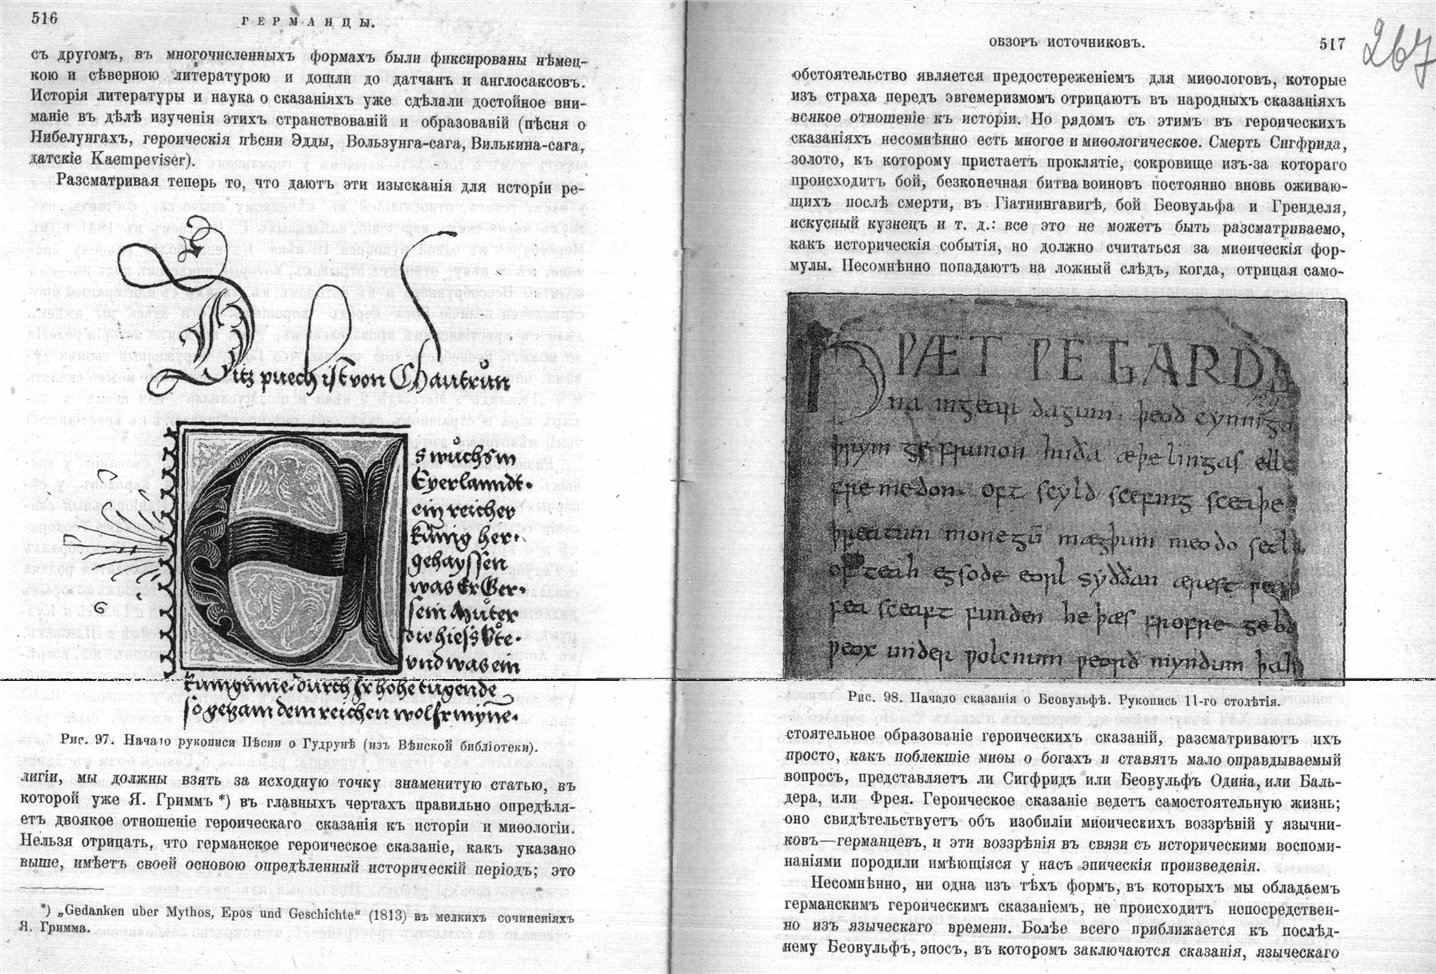 516
ГЕРМАНЦЫ.
съ другомъ, въ многочисленныхъ формахъ были фиксированы нѣмец-
кою и сѣверною литературою и дошли до датчанъ и англосаксовъ.
Исторія литературы и наука о сказаніяхъ уже сдѣлали достойное вни-
маніе въ дѣлѣ изученія этихъ странствованій и образованій (пѣсня о
Нибелунгахъ, героическія пѣсни Эдды, Вользунга-сага, Вилькина-сага,
датскіе Kaempeviser).
Разсматривая теперь то, что даютъ эти изысканія для исторіи ре-
Ditz puech ist von Chautrun
Es wuchs in
Eyerlanndt.
ein reicher
kunig her.
gehayssen
was Er Ger
sein Muter
die hiess Ute.
und was ein
kuniginne. durch Ir hohe tugende
so gezam dem reichen wol Ir mynne.
Рис. 97. Начало рукописи Пѣсни о Гудрунѣ (изъ Вѣнской библіотеки).
лигіи, мы должны взять за исходную точку знаменитую статью, въ
которой уже Я. Гриммъ *) въ главныхъ чертахъ правильно опредѣля-
етъ двоякое отношеніе героическаго сказанія къ исторіи и миѳологіи.
Нельзя отрицать, что германское героическое сказаніе, какъ указано
выше, имѣетъ своей основою опредѣленный историческій періодъ; это
*) „Gedanken uber Mythos, Epos und Geschichte“ (1813) въ мелкихъ сочиненіяхъ
Я. Гримма.
ОБЗОРЪ ИСТОЧНИКОВЪ.
517
267
обстоятельство является предостереженіемъ для миѳологовъ, которые
изъ страха передъ эвгемеризмомъ отрицаютъ въ народныхъ сказаніяхъ
всякое отношеніе къ исторіи. Но рядомъ съ этимъ въ героическихъ
сказаніяхъ несомнѣнно есть многое и миѳологическое. Смерть Сигфрида,
золото, къ которому пристаетъ проклятіе, сокровище изъ-за котораго
происходитъ бой, безконечная битва воиновъ постоянно вновь оживаю-
щихъ послѣ смерти, въ Гіатнингавигѣ, бой Беовульфа и Гренделя,
искусный кузнецъ и т. д.: все это не можетъ быть разсматриваемо,
какъ историческія событія, но должно считаться за миѳическія фор-
мулы. Несомнѣнно попадаютъ на ложный слѣдъ, когда, отрицая само-
HǷÆT ǷE GARDE
na ingear dagum. þeod cyninga
þrym ge frunon huða æþelingas elle
fremedon. oft scyld scefing sceaþe
þreatum monegū mægþum meodo setl
of teah egsode eorl syððan ærest ƿear
fea sceaft funden he þæs frofre geba
ƿeox under ƿolcnum ƿeorð myndum þah
Рис. 98. Начало сказанія о Беовульфѣ. Рукопись 11-го столѣтія.
стоятельное образованіе героическихъ сказаній, разсматриваютъ ихъ
просто, какъ поблекшіе миѳы о богахъ и ставятъ мало оправдываемый
вопросъ, представляетъ ли Сигфридъ или Беовульфъ Одина, или Баль-
дера, или Фрея. Героическое сказаніе ведетъ самостоятельную жизнь;
оно свидѣтельствуетъ объ изобиліи миѳическихъ воззрѣній у язычни-
ковъ—германцевъ, и эти воззрѣнія въ связи съ историческими воспоми-
наніями породили имѣющіяся у насъ эпическія произведенія.
Несомнѣнно, ни одна изъ тѣхъ формъ, въ которыхъ мы обладаемъ
германскимъ героическимъ сказаніемъ, не происходитъ непосредствен-
но изъ языческаго времени. Болѣе всего приближается къ послѣд-
нему Беовульфъ, эпосъ, въ которомъ заключаются сказанія, языческаго